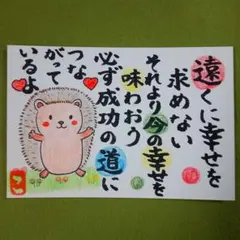 遠くに幸せを
求めない
それより今の幸せを
味わおう
必ず成功の道に
つな
がって
いるよ